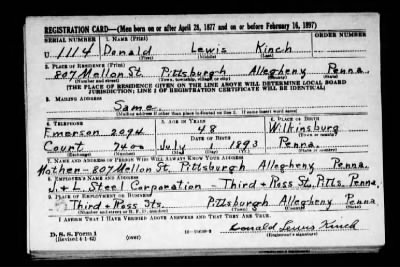 REGISTRATION CARD—(Men born on or after April 28, 1877 and on or before February 16, 1897)
SERIAL NUMBER 1. NAME (Print) ORDER NUMBER
U 1114 Donald Lewis Kinch
(First) (Middle) (Last)
2. PLACE OF RESIDENCE (Print)
807 Mellon St. Pittsburgh Allegheny Penna.
(Number and street) (Town, township, village, or city) (County) (State)
[THE PLACE OF RESIDENCE GIVEN ON THE LINE ABOVE WILL DETERMINE LOCAL BOARD
JURISDICTION; LINE 2 OF REGISTRATION CERTIFICATE WILL BE IDENTICAL]
3. MAILING ADDRESS
Same
[Mailing address if other than place indicated on line 2. If same insert word same]
4. TELEPHONE 5. AGE IN YEARS 6. PLACE OF BIRTH
Emerson 2094 48 Wilkinsburg
DATE OF BIRTH (Town or county)
Court 7400 July 1 1893 Penna.
(Exchange) (Number) (Mo.) (Day) (Yr.) (State or country)
7. NAME AND ADDRESS OF PERSON WHO WILL ALWAYS KNOW YOUR ADDRESS
Mother-807 Mellon St. Pittsburgh Allegheny Penna.
8. EMPLOYER'S NAME AND ADDRESS
J. + L. Steel Corporation - Third + Ross St., Pitts. Penna.
9. PLACE OF EMPLOYMENT OR BUSINESS
Third + Ross Sts. Pittsburgh Allegheny Penna.
(Number and street or R. F. D. number) (Town) (County) (State)
I AFFIRM THAT I HAVE VERIFIED ABOVE ANSWERS AND THAT THEY ARE TRUE.
D. S. S. Form 1
(Revised 4-1-42) (over) Donald Lewis Kinch
(Registrant's signature)